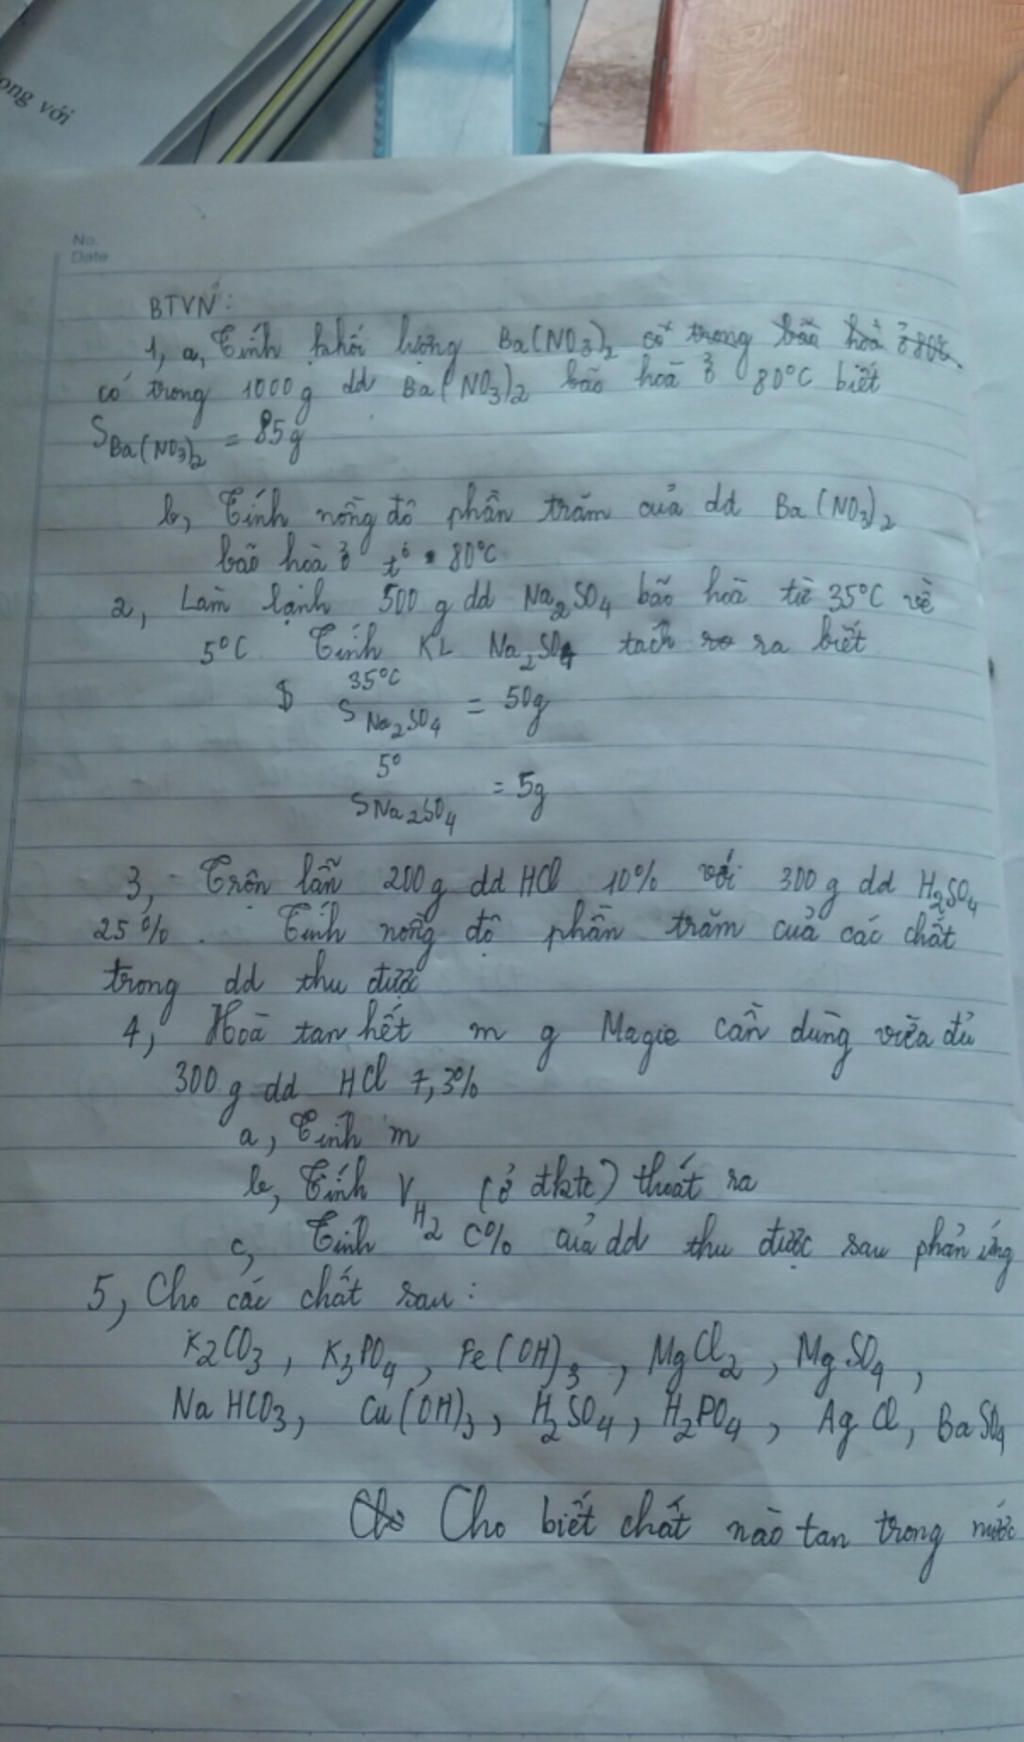 ong với
No.
Date
BTVN:
1, a, Tính khối lượng Ba(NO3)2 có trong bão hoà ở 80°C
có trong 1000g dd Ba(NO3)2 bão hoà ở 80°C biết
SBa(NO3)2 = 85g
b, Tính nồng độ phần trăm của dd Ba(NO3)2
bão hoà ở t° = 80°C
2, Làm lạnh 500 g dd Na2SO4 bão hoà từ 35°C về
5°C Tính KL Na2SO4 tách ra biết
35°C
S Na2SO4 = 50g
5°
SNa2SO4 = 5g
3, Trộn lẫn 200g dd HCl 10% với 300g dd H2SO4
25%. Tính nồng độ phần trăm của các chất
trong dd thu được
4, Hoà tan hết m g Magie cần dùng vừa đủ
300g dd HCl 7,3%
a, Tính m
b, Tính VH2 (ở đktc) thoát ra
c, Tính C% của dd thu được sau phản ứng
5, Cho các chất sau:
K2CO3, K3PO4, Fe(OH)3, MgCl2, MgSO4,
NaHCO3, Cu(OH)3, H2SO4, H2PO4, AgCl, BaSO4
Cho Cho biết chất nào tan trong nước